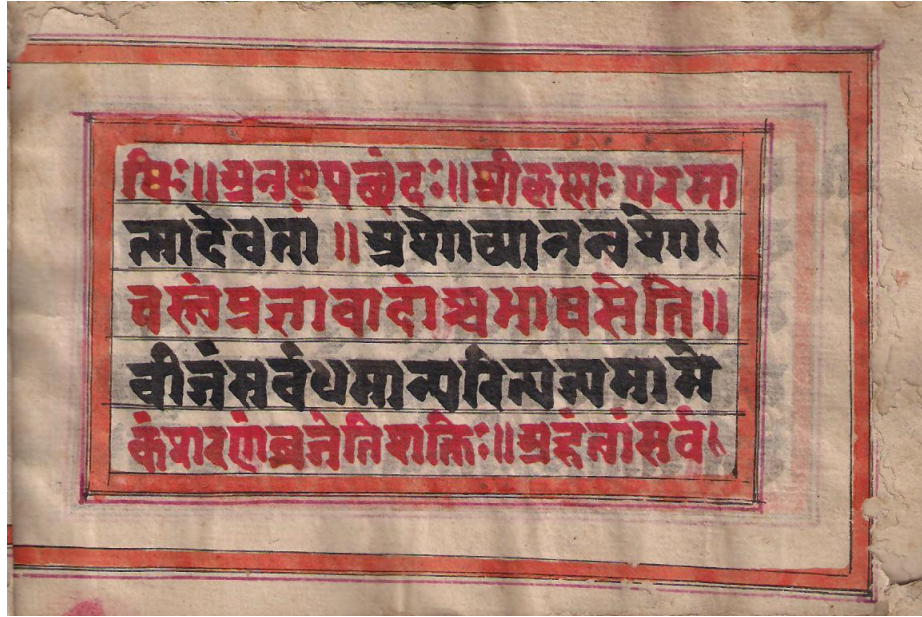 षिः॥अनुष्टुपछंदः॥श्रीकृष्णः परमा
त्मादेवता॥अशोच्यानन्वशोच
स्त्वंप्रज्ञावादांश्चभाषसेति॥
बीजंसर्वधर्मान्परित्यज्यमामे
कंशरणंव्रजेतिशक्तिः॥अहंत्वांसर्व